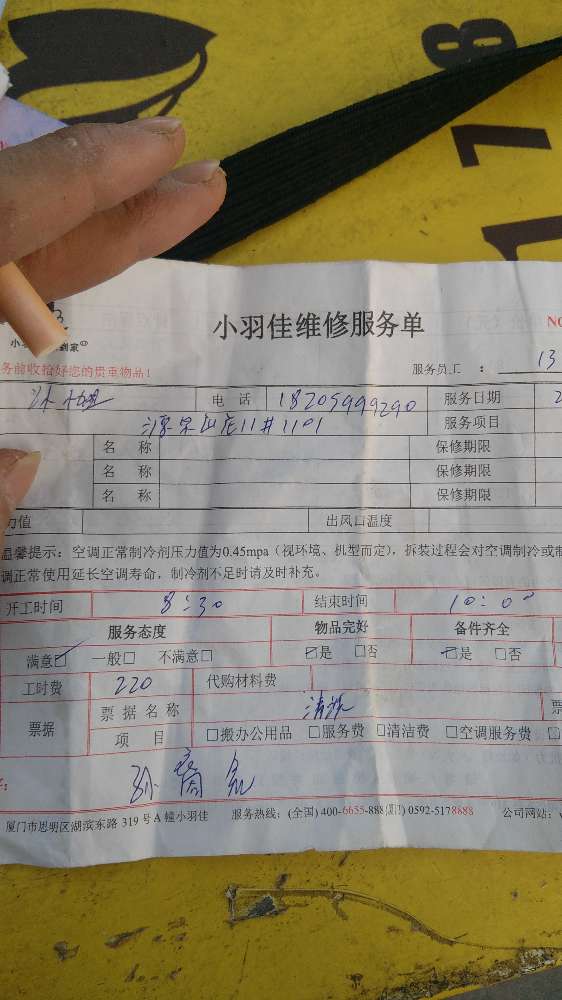 78
小羽佳维修服务单
NO
到家
务前收拾好您的贵重物品！
服务员工 ： 13
电话 18205999290 服务日期 2
11井1101 服务项目
名称 保修期限
名称 保修期限
名称 保修期限
力值 出风口温度
温馨提示：空调正常制冷剂压力值为0.45mpa（视环境、机型而定），拆装过程会对空调制冷或制
调正常使用延长空调寿命，制冷剂不足时请及时补充。
开工时间 8:30 结束时间 10:00
服务态度 物品完好 备件齐全
满意☑ 一般□ 不满意□ ☑是 □否 ☑是 □否
工时费 220 代购材料费
票据 票据名称 清洗 票
项目 □搬办公用品 □服务费 □清洁费 □空调服务费 □
厦门市思明区湖滨东路 319 号 A 幢小羽佳 服务热线：(全国) 400-6655-888 (厦门) 0592-5178888 公司网站：